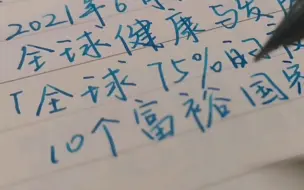 2021年6
全球健康与发
「全球75%的
10个富裕国家